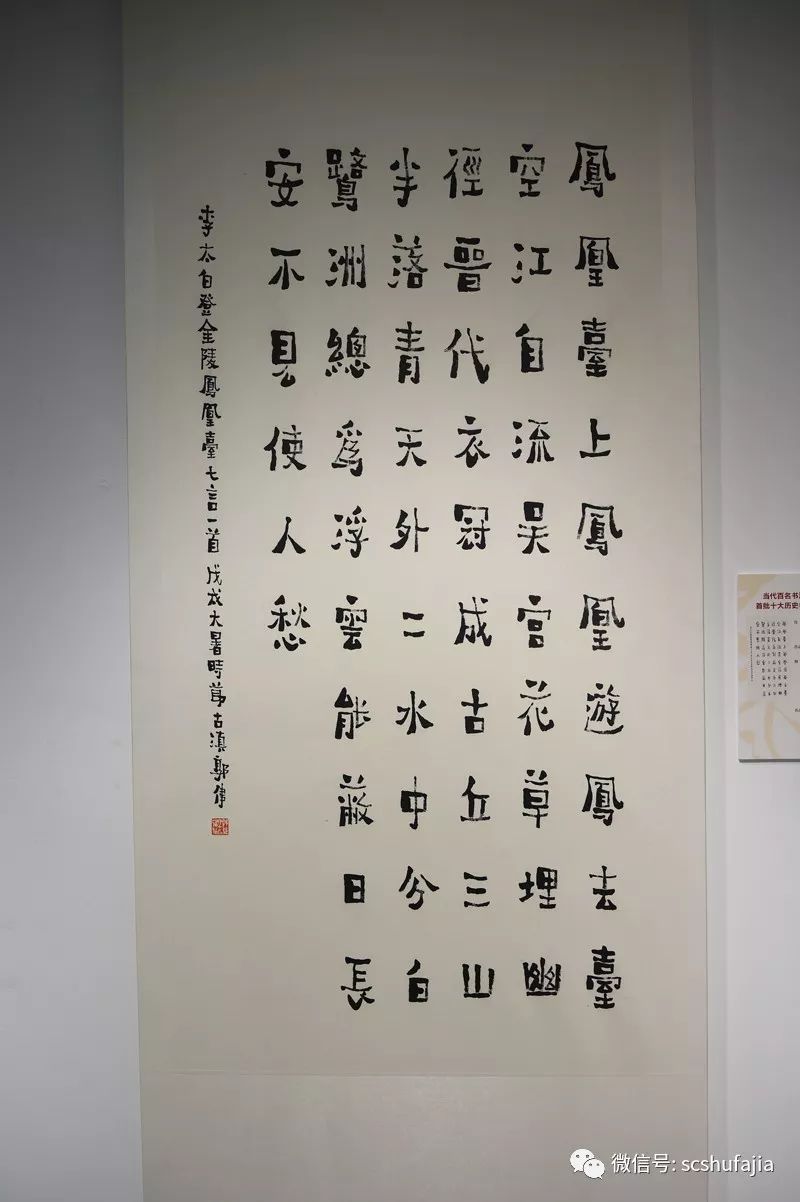 鳳凰臺上鳳凰遊鳳去臺
空江自流吳宮花草埋幽
徑晉代衣冠成古丘三山
半落青天外二水中分白
鷺洲總爲浮雲能蔽日長
安不見使人愁
李太白登金陵鳳凰臺七言一首 戊戌大暑時節古滇郭偉
当代百名书
首批十大历史
微信号: scshufajia